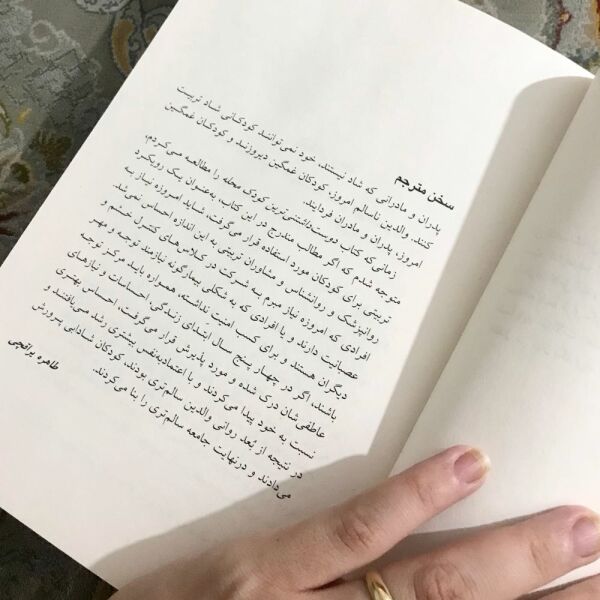 سخن مترجم
پدران و مادرانی که شاد نیستند، خود نمی‌توانند کودکانی شاد تربیت
کنند. والدین ناسالم امروز، کودکان غمگین دیروزند و کودکان غمگین
امروز، پدران و مادران فردایند.
زمانی که کتاب دوست‌داشتنی‌ترین کودک محله را مطالعه می‌کردم،
متوجه شدم که اگر مطالب مندرج در این کتاب، به‌عنوان یک رویکرد
تربیتی برای کودکان مورد استفاده قرار می‌گرفت، شاید امروزه نیاز به
روانپزشک و روانشناس و مشاوران تربیتی به این اندازه احساس نمی‌شد.
افرادی که امروزه نیاز مبرم به شرکت در کلاس‌های کنترل خشم و
عصبانیت دارند و یا افرادی که به شکلی بیمارگونه نیازمند توجه و مهر
دیگران هستند و برای کسب امنیت نداشته، همواره باید مرکز توجه
باشند، اگر در چهار پنج سال ابتدای زندگی احساسات و نیازهای
عاطفی‌شان درک شده و مورد پذیرش قرار می‌گرفت، احساس بهتری
نسبت به خود پیدا می‌کردند و با اعتمادبه‌نفس بیشتری رشد می‌یافتند و
در نتیجه از بُعد روانی والدین سالم‌تری بودند، کودکان شادابی پرورش
می‌دادند و درنهایت جامعه سالم‌تری را بنا می‌کردند.
طاهره یراقچی